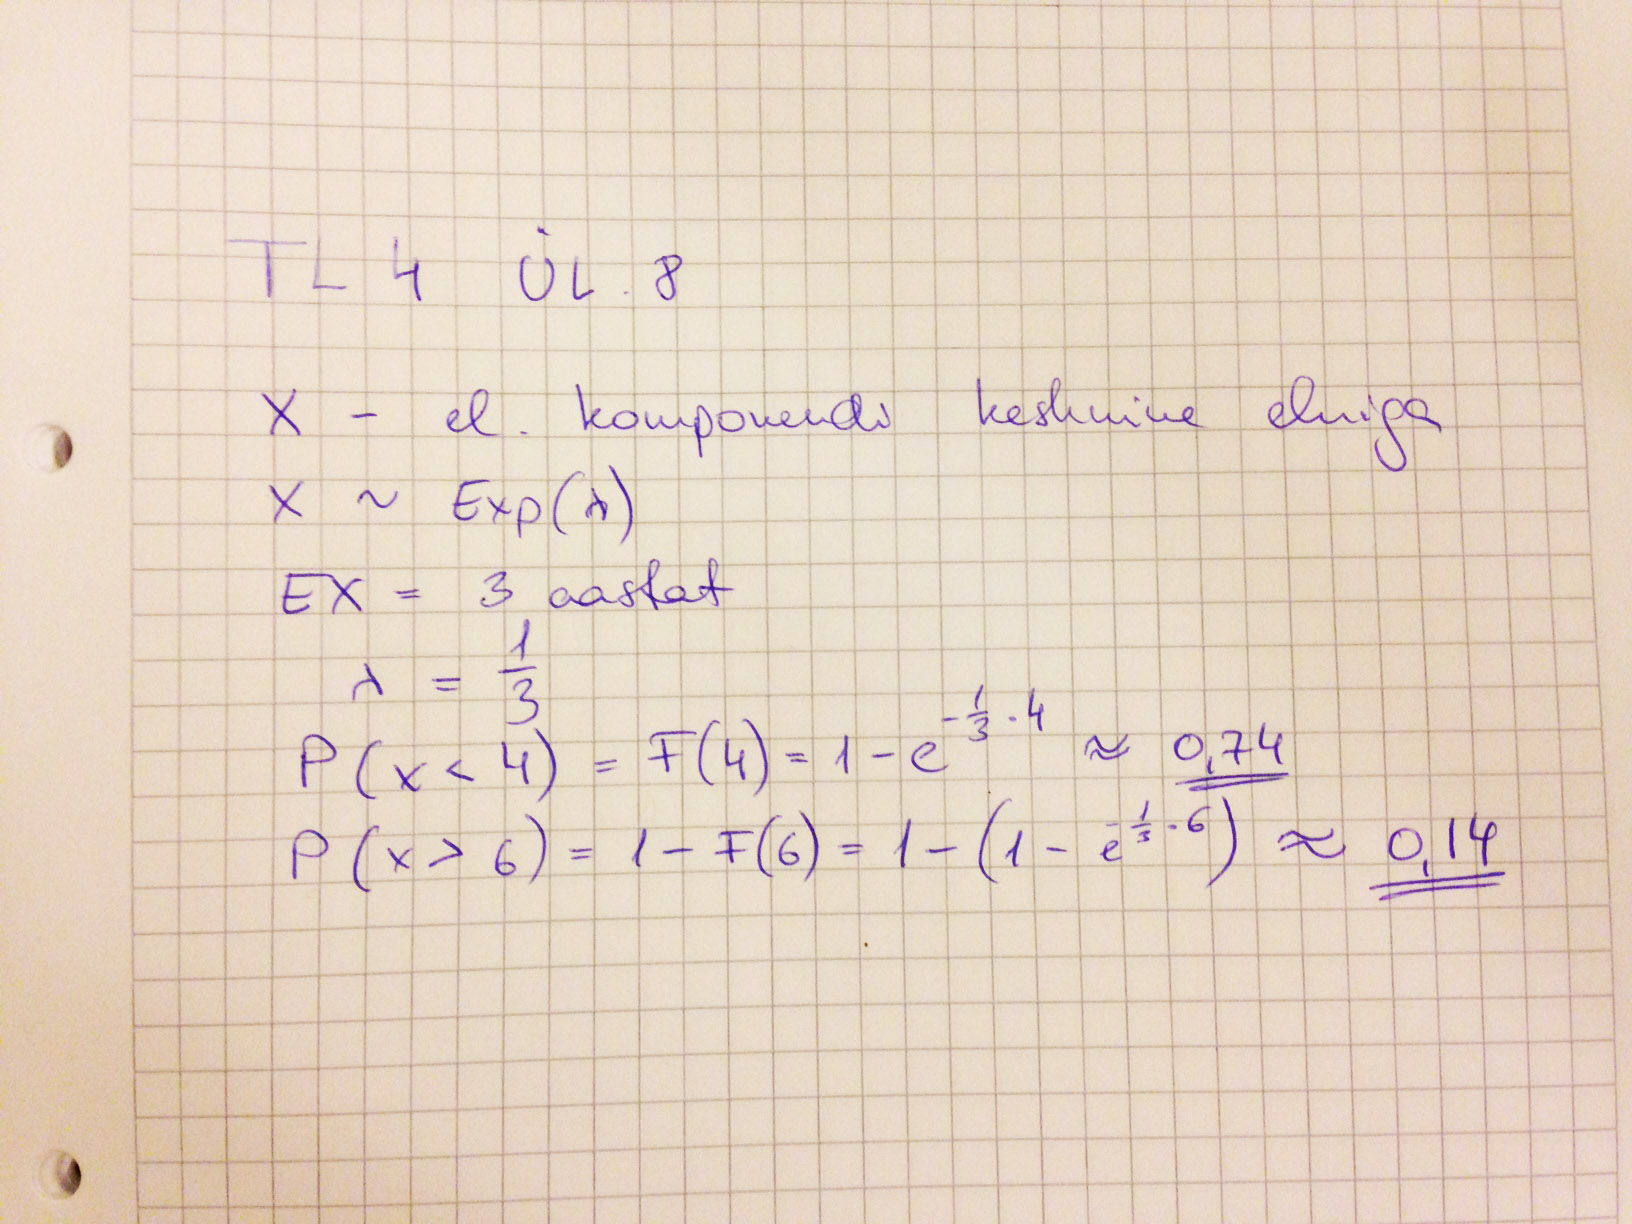 TL 4 ÜL. 8
X - el. komponendi keskmine eluiga
X ~ Exp(λ)
EX = 3 aastat
λ = 1/3
P(x < 4) = F(4) = 1 - e^(-1/3 · 4) ≈ 0,74
P(x > 6) = 1 - F(6) = 1 - (1 - e^(-1/3 · 6)) ≈ 0,14